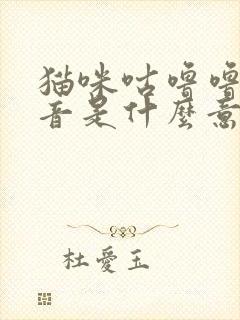 猫咪咕噜噜
音是什麼意
杜愛玉